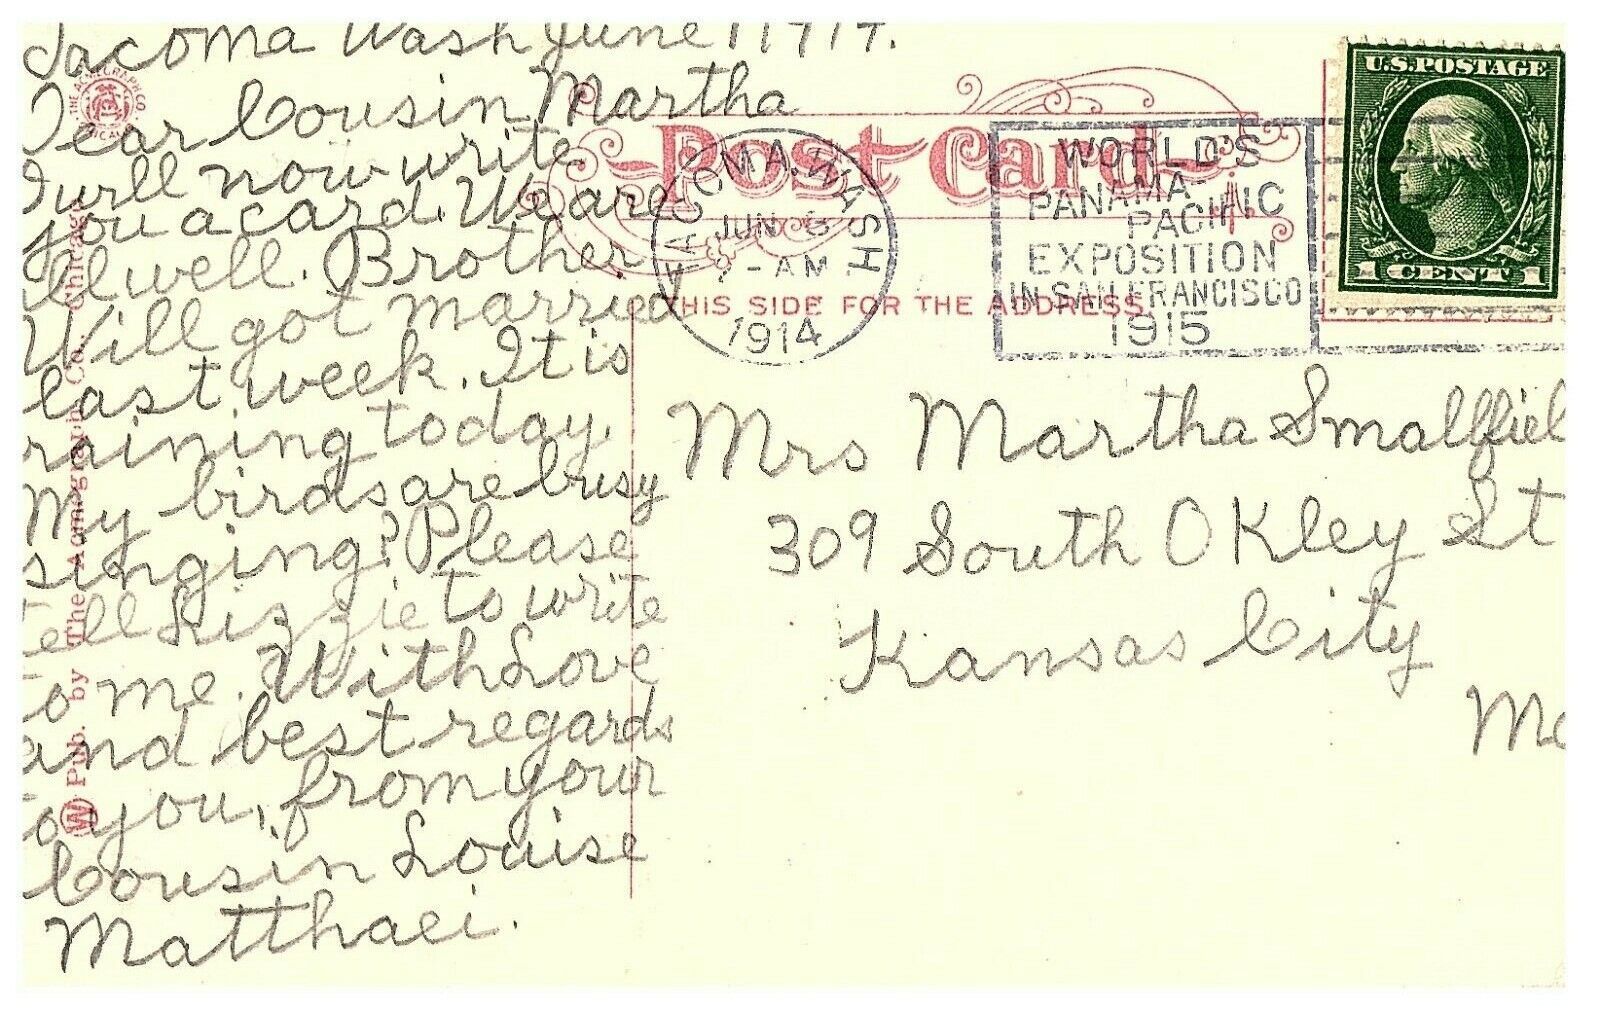 Tacoma Wash June 1 1914.
Dear Cousin Martha
I will now write
you a card. We are
all well. Brother
Will got married
last week. It is
raining today.
My birds are busy
singing? Please
tell Lizzie to write
to me. With Love
and best regards
to you, from your
Cousin Louise
Matthaei.
THE ACMEGRAPH CO
CHICAGO
W Pub. by The Acmegraph Co., Chicago
Post Card
THIS SIDE FOR THE ADDRESS.
TACOMA, WASH
JUN 6
-AM
1914
WORLD'S
PANAMA-
PACIFIC
EXPOSITION
IN SAN FRANCISCO
1915
U.S. POSTAGE
1 CENT 1
Mrs Martha Smallfiel
309 South Okley St
Kansas City
Mo